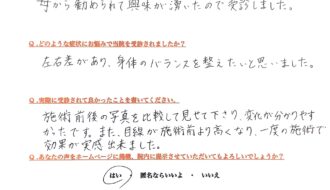 母から勧められて興味が湧いたので受診しました。
Q .どのような症状にお悩みで当院を受診されましたか?
左右差があり、身体のバランスを整えたいと思いました。
Q .実際に受診されて良かったことを書いてください。
施術前後の写真を比較して見せて下さり、変化が分かりやす
かったです。また、目線が施術前より高くなり、一度の施術で
効果が実感出来ました。
Q .あなたの声をホームページに掲載、院内に提示させていただいてもよろしいでしょうか?
はい ・ 匿名ならいいよ ・ いいえ